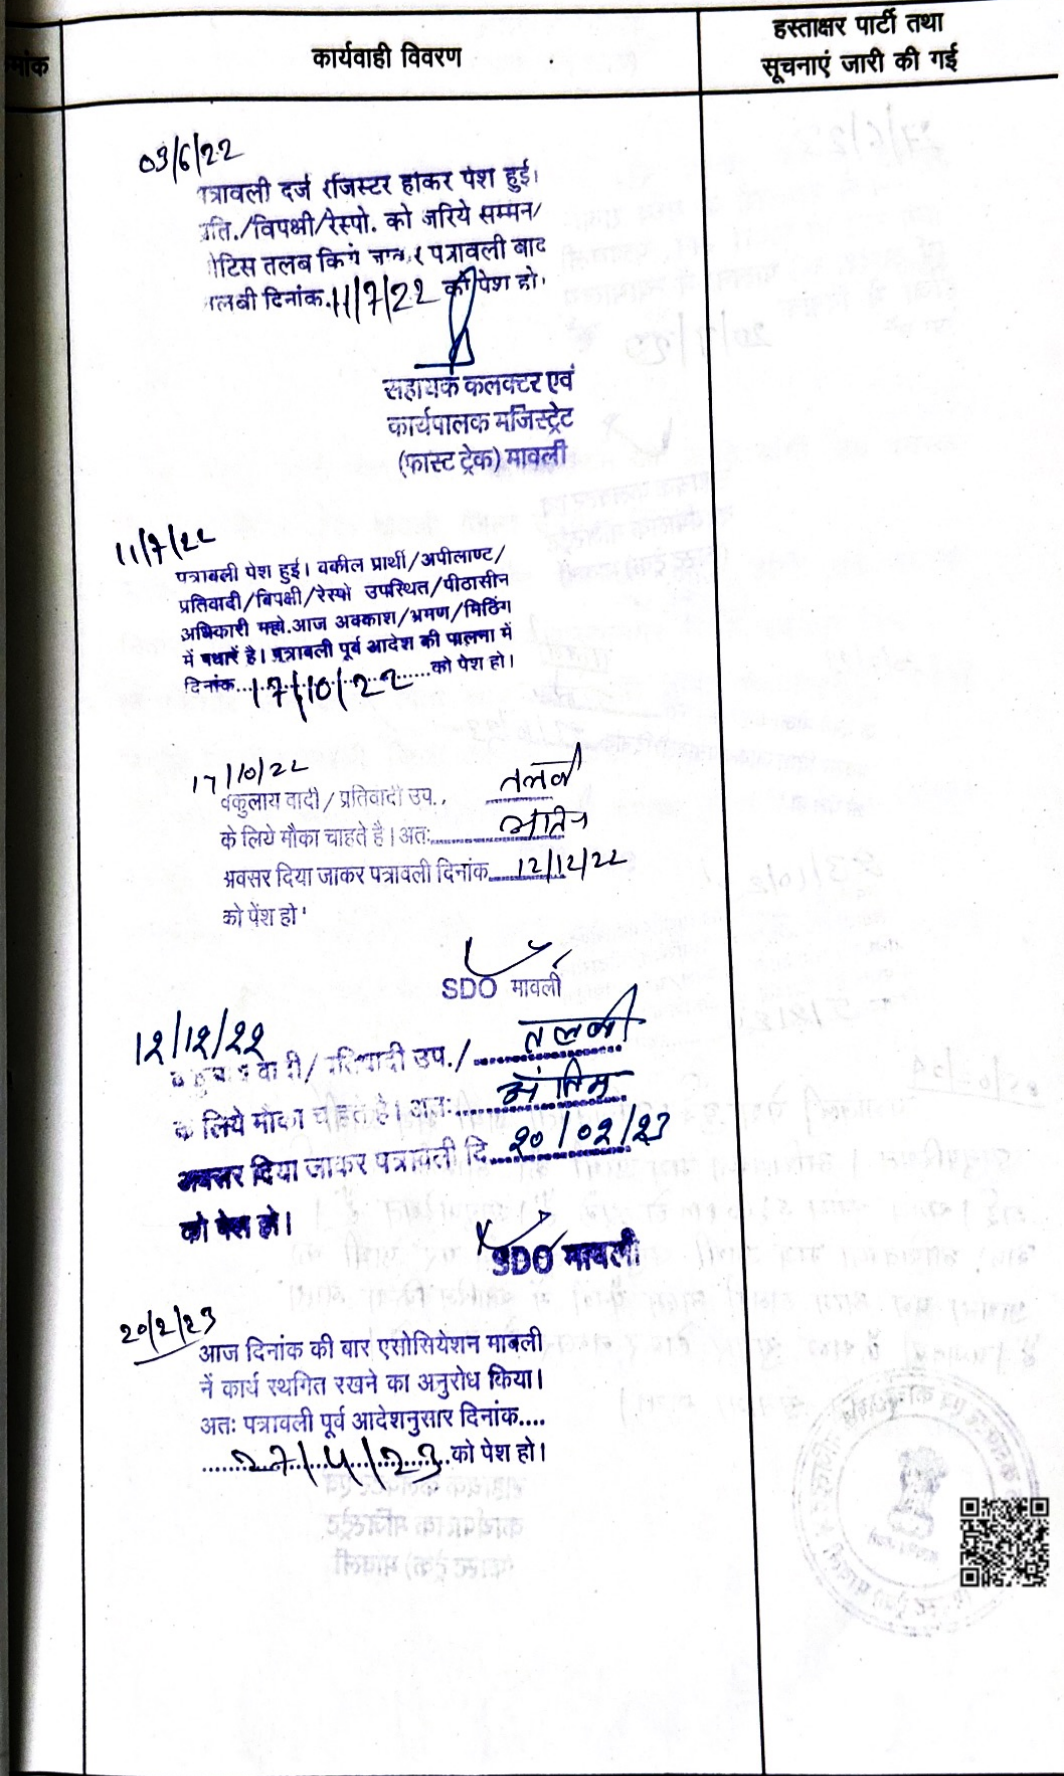 मांक
कार्यवाही विवरण
हस्ताक्षर पार्टी तथा
सूचनाएं जारी की गई
03/6/22
त्रावली दर्ज रजिस्टर होकर पेश हुई।
ति./विपक्षी/रेस्पो. को जरिये सम्मन/
टिस तलब किये जाकर पत्रावली बाद
लबी दिनांक.11/7/22 को पेश हो।
सहायक कलक्टर एवं
कार्यपालक मजिस्ट्रेट
(फास्ट ट्रेक) मावली
11/7/22
पत्रावली पेश हुई। वकील प्रार्थी/अपीलाण्ट/
प्रतिवादी/विपक्षी/रेस्पो उपस्थित/पीठासीन
अधिकारी महो.आज अवकाश/भ्रमण/मिठिंग
में पधारें है। पत्रावली पूर्व आदेश की पालना में
दिनांक...17/10/22......को पेश हो।
17/10/22
वकुलाय वादी/प्रतिवादी उप., तलबी
के लिये मौका चाहते है। अतः
अवसर दिया जाकर पत्रावली दिनांक...12/12/22
को पेंश हो
SDO मावली
12/12/22
वादी/प्रतिवादी उप./ तलबी
के लिये मौका चाहते है। अतः अंतिम
अवसर दिया जाकर पत्रावली दि. 20/02/23
को पेश हो।
SDO मावली
20/2/23
आज दिनांक की बार एसोसियेशन मावली
नें कार्य स्थगित रखने का अनुरोध किया।
अतः पत्रावली पूर्व आदेशनुसार दिनांक....
......27/4/23.को पेश हो।